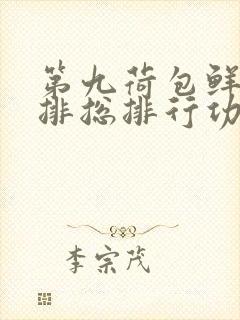 第九荷包鲜
排总排行功
李宗茂